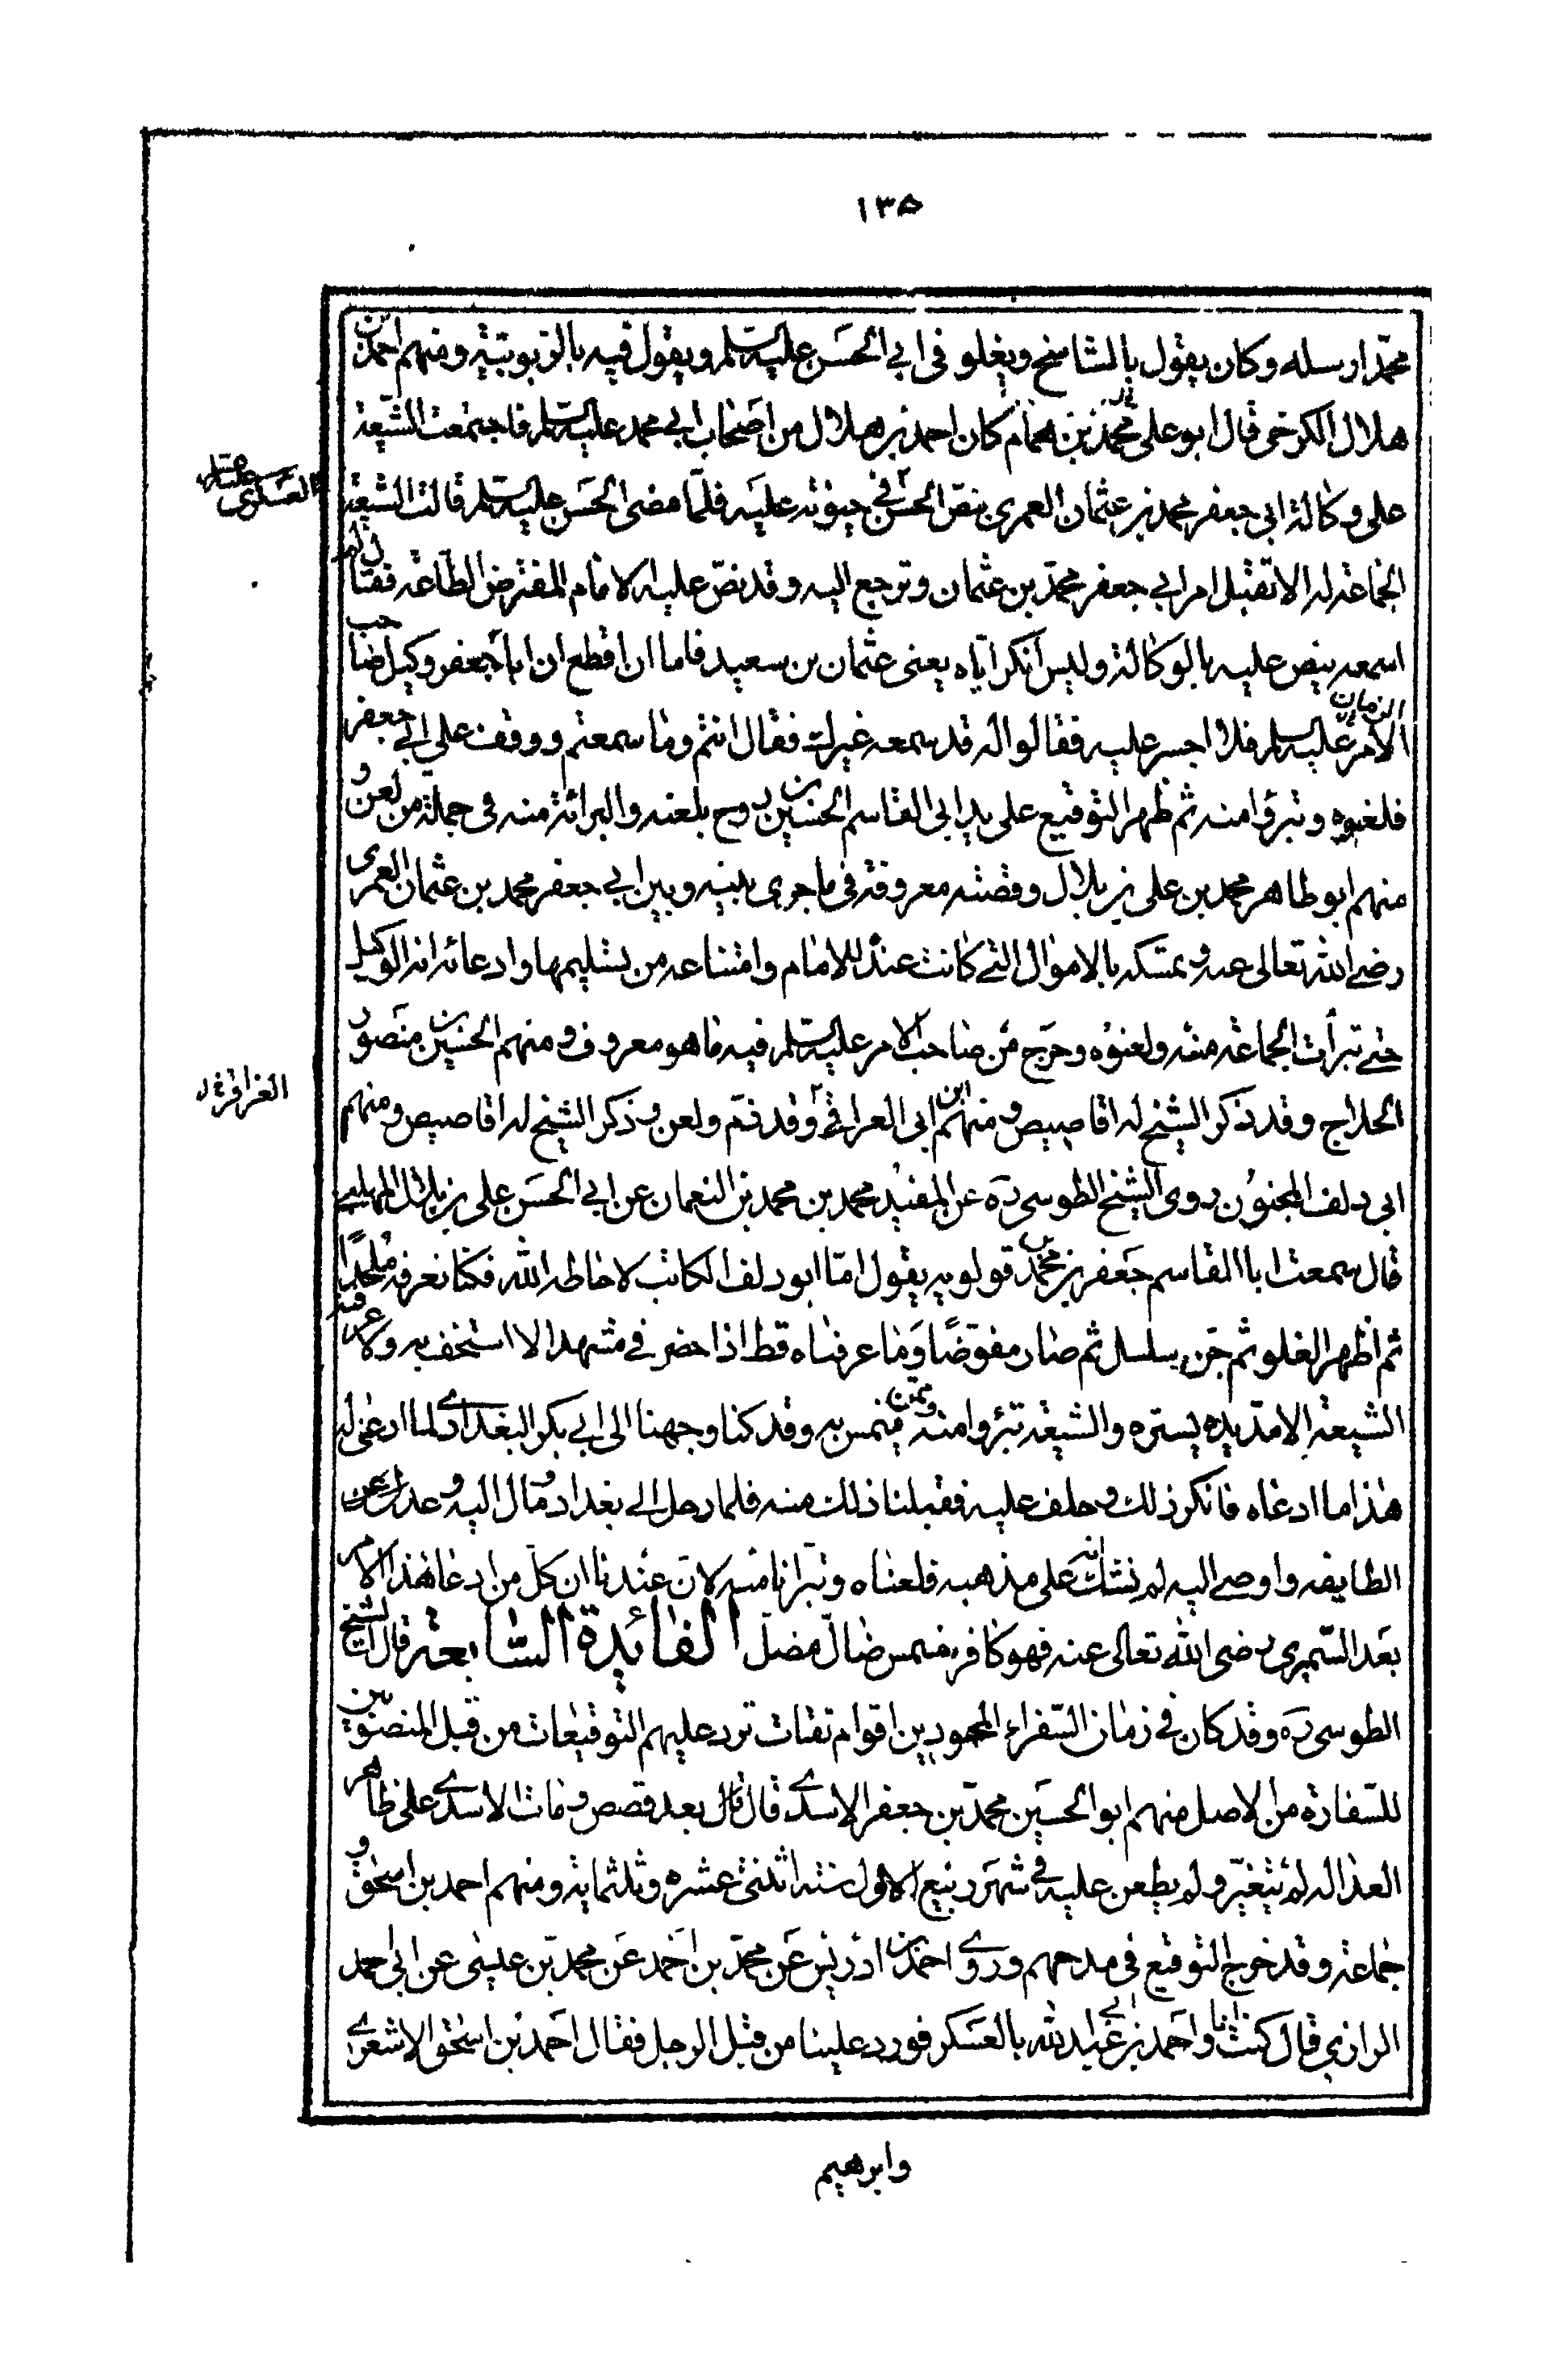 ١٣٥
محمدا رسله وكان يقول بالتناسخ ويغلو فى ابي الحسن عليه السلم ويقول فيه بالربوبيته ومنهم احمد بن
هلال الكرخى قال ابو على محمد بن همام كان احمد بن هلال من اصحاب ابي محمد عليه السلم فاجتمعت الشيعة
على وكالة ابى جعفر محمد بن عثمان العمرى بنص الحسن فى حيوته عليه فلما مضى الحسن عليه السلم قالت الشيعة
العسكرى عليه السلم
الجماعة له الا تقبل امر ابي جعفر محمد بن عثمان وترجع اليه وقد نص عليه الامام المفترض الطاعة فقال لم
اسمعه ينص عليه بالوكالة وليس انكر اباه يعنى عثمان بن سعيد فاما ان اقطع ان ابا جعفر وكيل صاحب
الزمان
الامر عليه السلم فلا اجسر عليه فقالوا له قد سمعه غيرك فقال انتم وما سمعتم ووقف على ابي جعفر
فلعنوه وتبرؤا منه ثم ظهر التوقيع على يد ابى القاسم الحسين بن روح بلعنه والبرائة منه فى جملة من لعن و
منهم ابو طاهر محمد بن على بن بلال وقصته معروفة فى ما جرى بينه وبين ابي جعفر محمد بن عثمان العمرى
رضى الله تعالى عنه وتمسكه بالاموال التى كانت عنده للامام وامتناعه من تسليمها وادعائه انه الوكيل
حتى تبرأت الجماعة منه ولعنوه وخرج من صاحب الامر عليه السلم فيه ما هو معروف ومنهم الحسين بن منصور
الحلاج وقد ذكر الشيخ له اقاصيص ومنهم ابن ابى العزاقر وقد ذم ولعن وذكر الشيخ له اقاصيص ومنهم
العزاقر خ ل
ابى دلف المجنون روى الشيخ الطوسى ره عن المفيد محمد بن محمد بن النعمان عن ابي الحسن على بن بلال المهلبى
قال سمعت ابا القاسم جعفر بن محمد بن قولويه يقول اما ابو دلف الكاتب لا حاطه الله فكنا نعرفه ملحدا
ثم اظهر الغلو ثم جن وسلسل ثم صار مفوضا وما عرفناه قط اذا حضر فى مشهد الا استخف به ولا عرفته
الشيعة الا مدة يسيره والشيعة تتبرؤا منه وممن ينمس به وقد كنا وجهنا الى ابي بكر البغدادى لما ادعى له
هذا ما ادعاه فانكر ذلك وحلف عليه فقبلنا ذلك منه فلما دخل الى بغداد مال اليه وعدل عن
الطايفه واوصى اليه لم نشك انه على مذهبه فلعناه وتبرانا منه لان عندنا ان كل من ادعا هذا الامر
بعد السمرى رضى الله تعالى عنه فهو كافر منمس ضال مضل الفائدة السابعة قال الشيخ
الطوسى ره وقد كان فى زمان السفراء المحمودين اقوام ثقات ترد عليهم التوقيعات من قبل المنصوبين
للسفارة من الاصل منهم ابو الحسين محمد بن جعفر الاسدى قال قال بعد قصص ومات الاسدى على ظاهر
العدالة لم يتغير ولم يطعن عليه فى شهر ربيع الاول سنة اثنتى عشره وثلثمايه ومنهم احمد بن اسحق و
جماعة وقد خرج التوقيع فى مدحهم وروى احمد بن ادريس عن محمد بن احمد عن محمد بن عيسى عن ابى محمد
الرازى قال كنت انا واحمد بن ابى عبد الله بالعسكر فورد علينا من قبل الرجل فقال احمد بن اسحق الاشعرى
وابرهيم